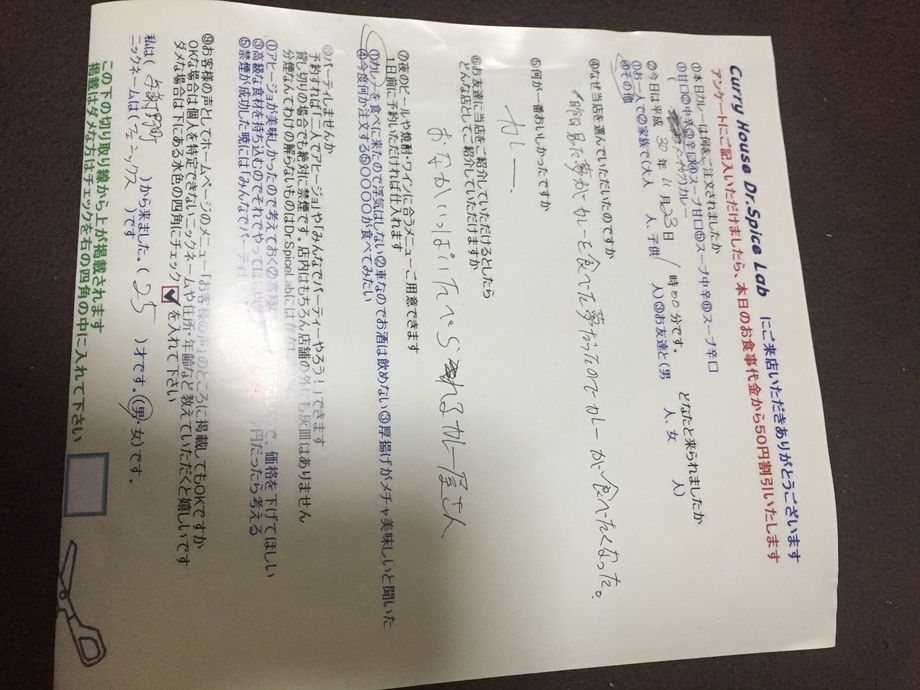 Curry House Dr.Spice Lab にご来店いただきありがとうございます
アンケートにご記入いただけましたら、本日のお食事代金から50円割引いたします
①本日カレーは何をご注文されましたか
①甘口②中辛③辛口④スープ甘口⑤スープ中辛⑥スープ辛口
カレー
②今日は平成 30 年 11 月 23 日 時 00 分です。 どなたと来られましたか
①お一人で②家族で(大人 人、子供 人)③お友達と(男 人、女 人)
④その他
④なぜ当店を選んでいただいたのですか
昨日見た夢がカレーを食べた夢だったのでカレーが食べたくなった。
⑤何が一番おいしかったですか
カレー。
⑥お友達に当店をご紹介していただけるとしたら
どんな店としてご紹介していただけますか
おなかいっぱいたべられるカレー屋さん
⑦夜のビールや焼酎・ワインに合うメニューご用意できます
1日前に予約いただければ仕入れます
①カレーを食べに来たので浮気はしない②車なのでお酒は飲めない③厚揚げがメチャ美味しいと聞いた
④今度何か注文する⑤〇〇〇〇が食べてみたい
⑧パーティしませんか
予約すれば「二人でアヒージョ」や「みんなでパーティーやろう!」できます
貸し切りの場合でも絶対に禁煙です。店内はもちろん店舗の外にも灰皿はありません
分煙なんてわけの解らないものはDr.SpiceLabには存在
①アヒージョが美味しかったので考えておく② で、価格を下げてほしい
③高級な食材を持ち込むのでそれでやってほしい 円だったら考える
⑤禁煙が成功した暁には「みんなでパーティ
⑨お客様の声としてホームページのメニュー「お客様の声」のところに掲載してもOKですか
OKな場合は個人を特定できないニックネームや住所・年齢など教えていただくと嬉しいです
ダメな場合は下にある水色の四角にチェック✔を入れて下さい
私は( 与謝野 )から来ました、( 25 )才です。(男・女)です。
ニックネームは( フェニックス )です
この下の切り取り線から上が掲載されます
掲載はダメな方はチェックを右の四角の中に入れて下さい